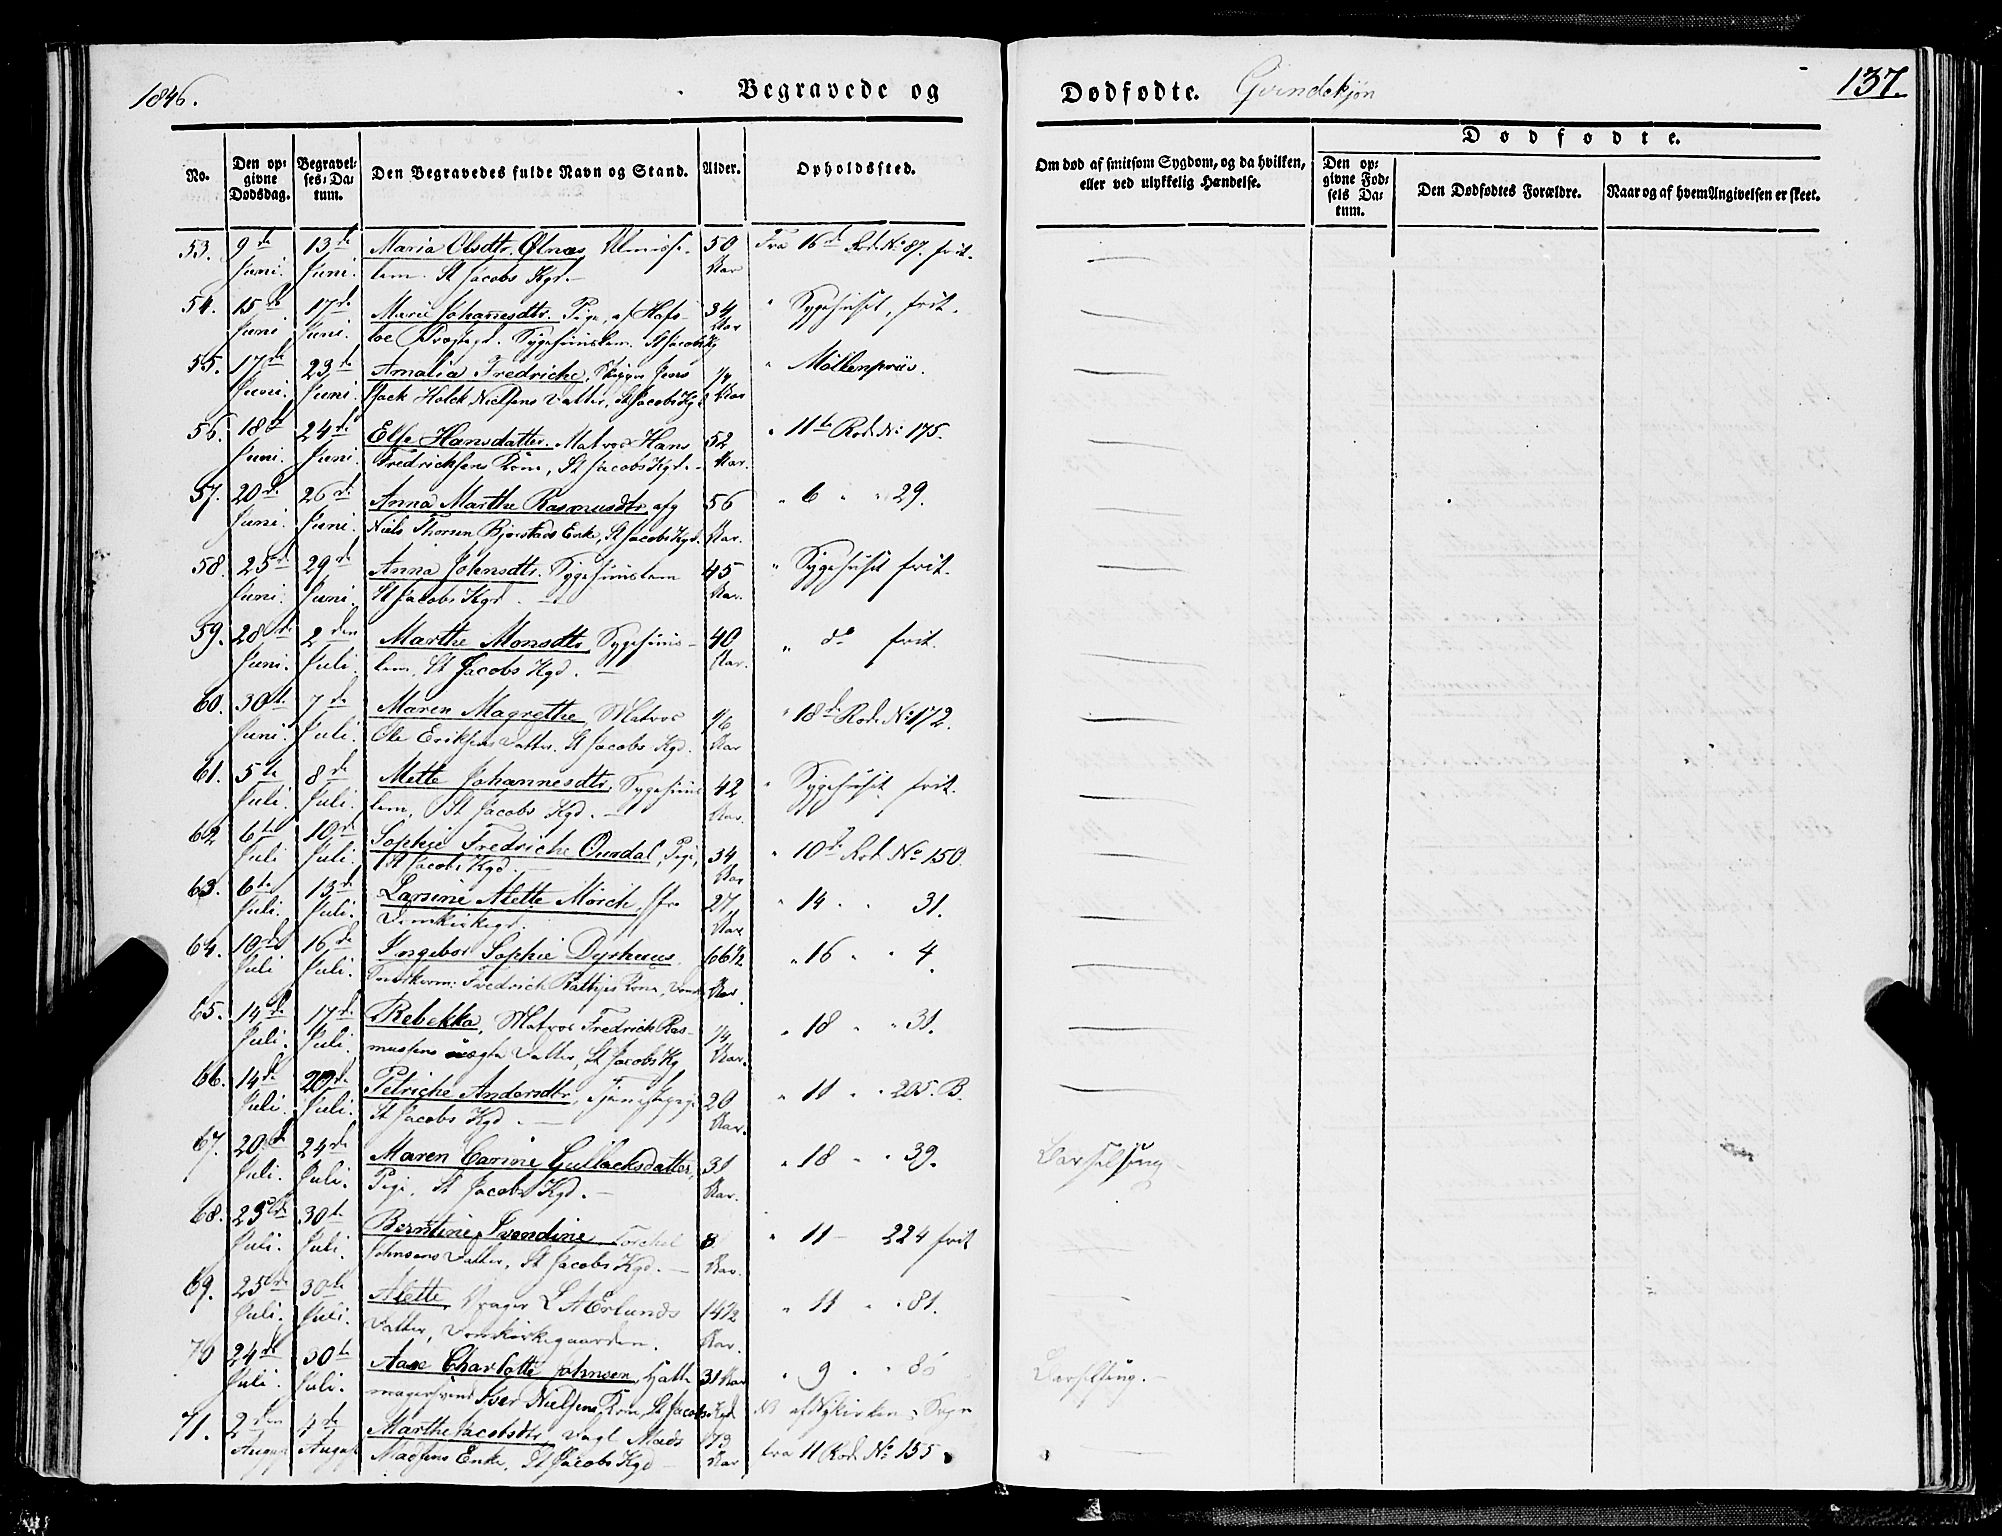 1846.
Begravede og
Dødfødte. Qvindekjøn
137.
No.
Den opgivne Dødsdag.
Begravelses-Datum.
Den Begravedes fulde Navn og Stand.
Alder.
Opholdssted.
Om død af smitsom Sygdom, og da hvilken, eller ved ulykkelig Hændelse.
Dødfødte.
Den opgivne Fødsels Datum.
Den Dødfødtes Forældre.
Naar og af hvem Angivelsen er skeet.
53. 9de 13de Maria Olsdtr. Ølnæs, 50 Fra 16de Rode No 87. frit.
Juni. Juni. lem. St Jacobs Kgd. Aar
54. 15de 17de Marie Johannesdtr. Pige, af Hafs- 34 " Sygehuset, frit.
Juni. Juni. loe Præstegd. Sygehuuslem. St Jacobs Kg Aar
55. 17de 23de Amalia Fredriche, Skipper Jens 1/4 " Møllenpriis.
Juni. Juni. Holck Nielsens Datter, St Jacobs Kgd Aar
56. 18de 24de Else Hansdatter. Matros Hans 52 " 11te Rode No 175.
Juni. Juni. Fredricksens Kone, St Jacobs Kgd. Aar.
57. 20de 26de Anna Marthe Rasmusdtr, afg 56 " 6 " " 29.
Juni. Juni. Niels Bjørstads Enke, St Jacobs Kgd. Aar.
58. 25de 29de Anna Johnsdtr. Sygehuuslem 45 " Sygehuset frit.
Juni. Juni. St Jacobs Kgd. Aar.
59. 28de 2den Marthe Monsdtr, Sygehuus- 40 " do frit.
Juni. Juli. lem, St Jacobs Kgd. Aar.
60. 30te 7de Maren Magrethe, Matros 1/6 " 18de Rode No 172.
Juni. Juli. Ole Eriksens Datter. St Jacobs Kgd. Aar
61. 5te 8de Mette Johannesdtr, Sygehuus 42 " Sygehuset frit.
Juli. Juli. lem, St Jacobs Kgd. Aar.
62 6te 10de Sophie Fredriche Ourdal, Pige, 34 " 10de Rod. No 150
Juli Juli. St Jacobs Kgd. Aar
63. 6te 13de Larsine Alette Mørch, 27 " 14 " 31.
Juli. Juli. Domkirkegd. Aar.
64. 10de 16de Ingebor Sophie Dyrhuus 66 1/2 " 16 " " 4.
Juli Juli. Fredrich Kone, Aar.
65. 14de 17de Rebekka, Matros Fredrich Ras- 1/4 " 18 " " 31.
Juli. Juli. mussens uægte Datter, St Jacobs Kg Aar.
66. 14de 20de Petriche Andersdtr, Tjenestepige 20 " 11 " " 205. B.
Juli. Juli. St Jacobs Kgd. Aar.
67. 20de 24de Maren Carine Gullacksdatter, 31 " 18 " " 39. Barselseng
Juli. Juli. Pige, St Jacobs Kgd. Aar.
68. 30te Berntine Svendine Torchel 8 " 11 224 frit
Juli. Juli. Johnsens Datter, St Jacobs Kgd. Aar.
69. 25de 30te Alette, L A Erlunds 14 1/2 " 11 " " 81.
Juli. Juli. Datter, Domkirkegaarden. Aar.
70 24de 30te Aase Charlotte Johnsen, Hatte 31 Aar " 9 " 80 Barselseng.
Juli. Juli. magersvend Iver Nielsens Kone, St Jacobs Kgd NB af Nykirkens Sogn
71. 2den 4de Marthe Jacobsdtr, Mads 73 fra 11 Rod. No 155
August August Madsens Enke, St Jacobs Kgd Aar